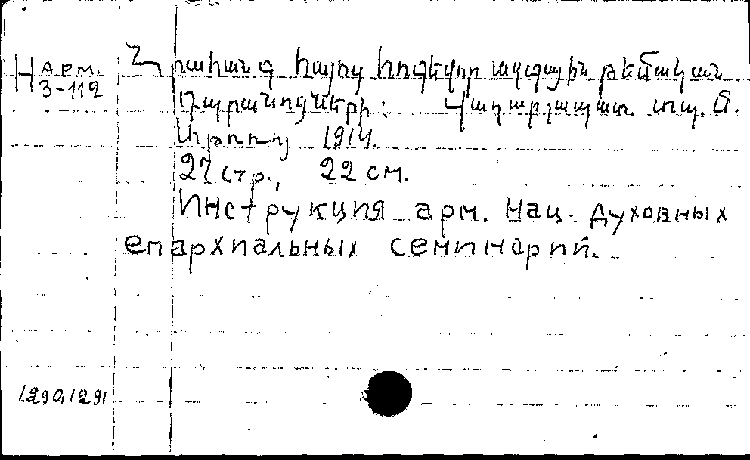 Нарм.
3-112
Հրահանգ հայոց հոգևոր ազգային թեմական
դպրանոցների: Վաղարշապատ. տպ. Մ.
Աթոռոյ 1914.
27 стр., 22 см.
Инструкция арм. нац. духовных
епархиальных семинарий.
1290,1291